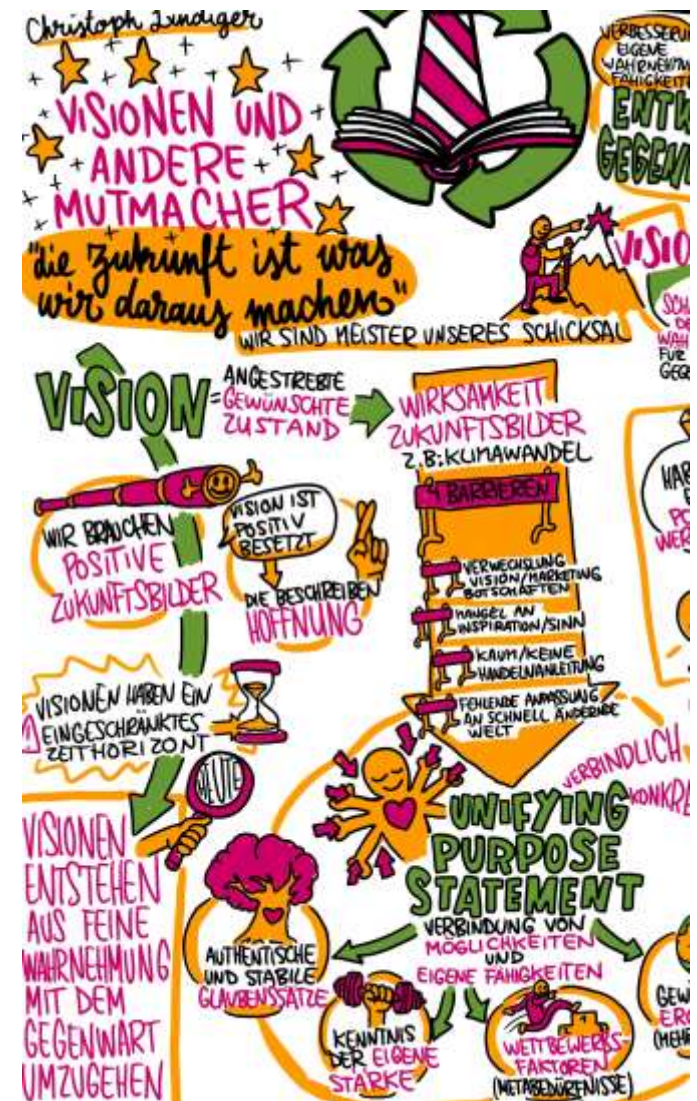 Christoph Lindiger
VISIONEN UND
ANDERE
MUTMACHER
"die Zukunft ist was
wir daraus machen"
WIR SIND MEISTER UNSERES SCHICKSAL
EIGENE
VISION
= ANGESTREBTE
GEWÜNSCHTE
ZUSTAND
WIRKSAMKEIT
ZUKUNFTSBILDER
Z.B: KLIMAWANDEL
4 BARRIEREN
VERWECHSLUNG
VISION/MARKETING
BOTSCHAFTEN
MANGEL AN
INSPIRATION/SINN
KAUM/KEINE
HANDELNANLEITUNG
FEHLENDE ANPASSUNG
AN SCHNELL ÄNDERNDE
WELT
WIR BRAUCHEN
POSITIVE
ZUKUNFTSBILDER
VISION IST
POSITIV
BESETZT
DIE BESCHREIBEN
HOFFNUNG
VISIONEN HABEN EIN
EINGESCHRANKTES
ZEITHORIZONT
HEUTE
VISIONEN
ENTSTEHEN
AUS FEINE
WAHRNEHMUNG
MIT DEM
GEGENWART
UMZUGEHEN
VERBINDLICH
UNIFYING
PURPOSE
STATEMENT
VERBINDUNG VON
MÖGLICHKEITEN
UND
EIGENE FÄHIGKEITEN
AUTHENTISCHE
UND STABILE
GLAUBENSSÄTZE
KENNTNIS
DER EIGENE
STÄRKE
1
WETTBEWERBS-
FAKTOREN
(METABEDÜRFNISSE)
FÜR